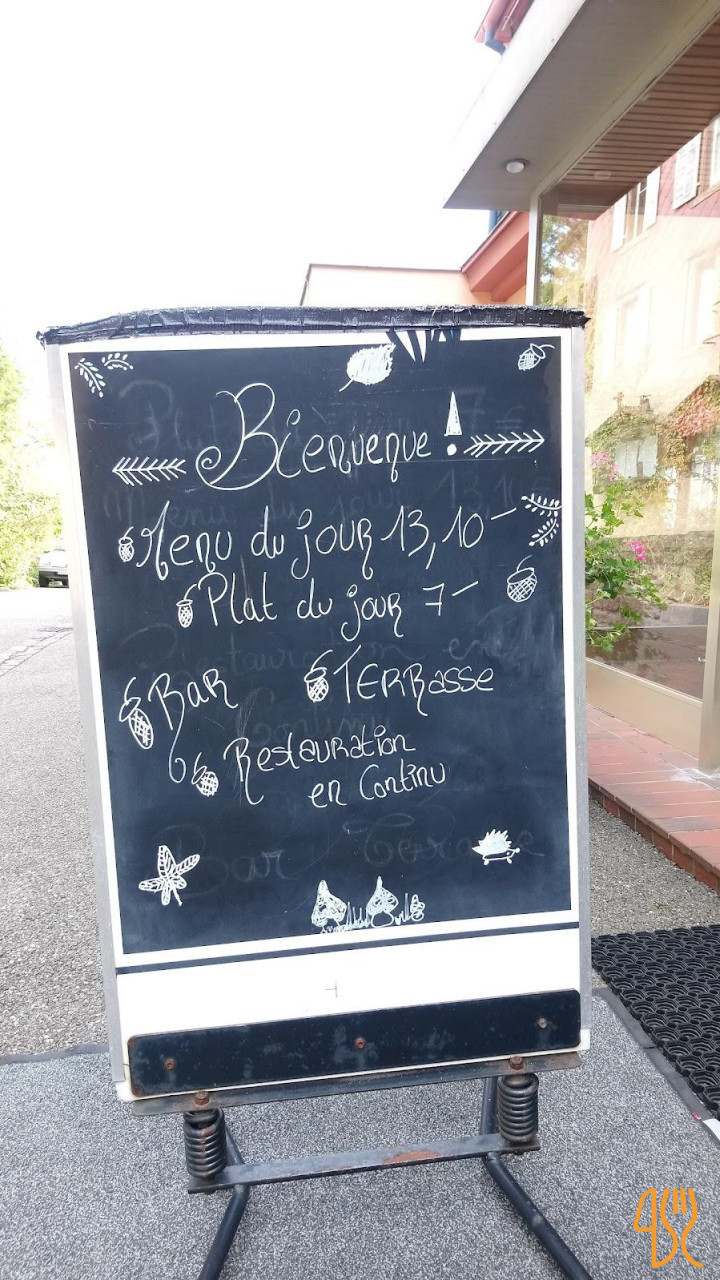 Bienvenue !
Menu du jour 13,10 –
Plat du jour 7 –
Bar Terrasse
Restauration
en Continu